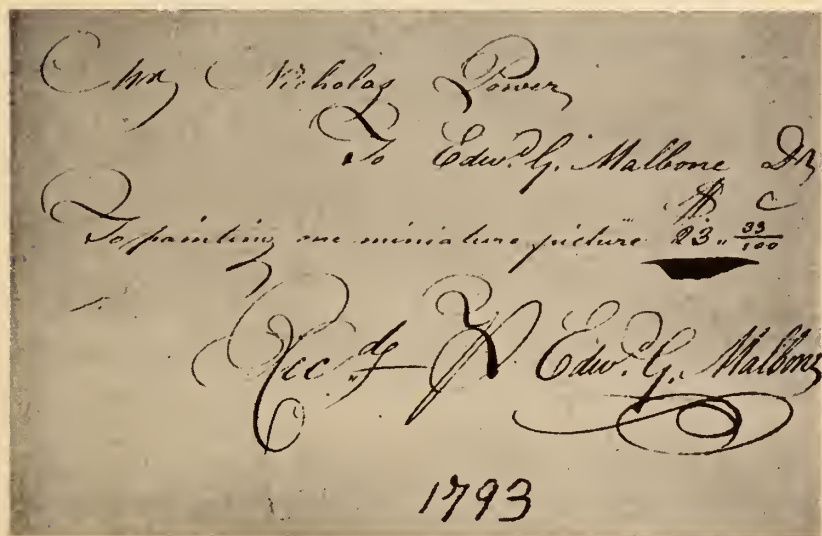 Mr Nicholas Power
To Edwd. G. Malbone Dr
$ C
To painting one miniature picture 23 " 33/100
Recd. Edwd. G. Malbone
1793